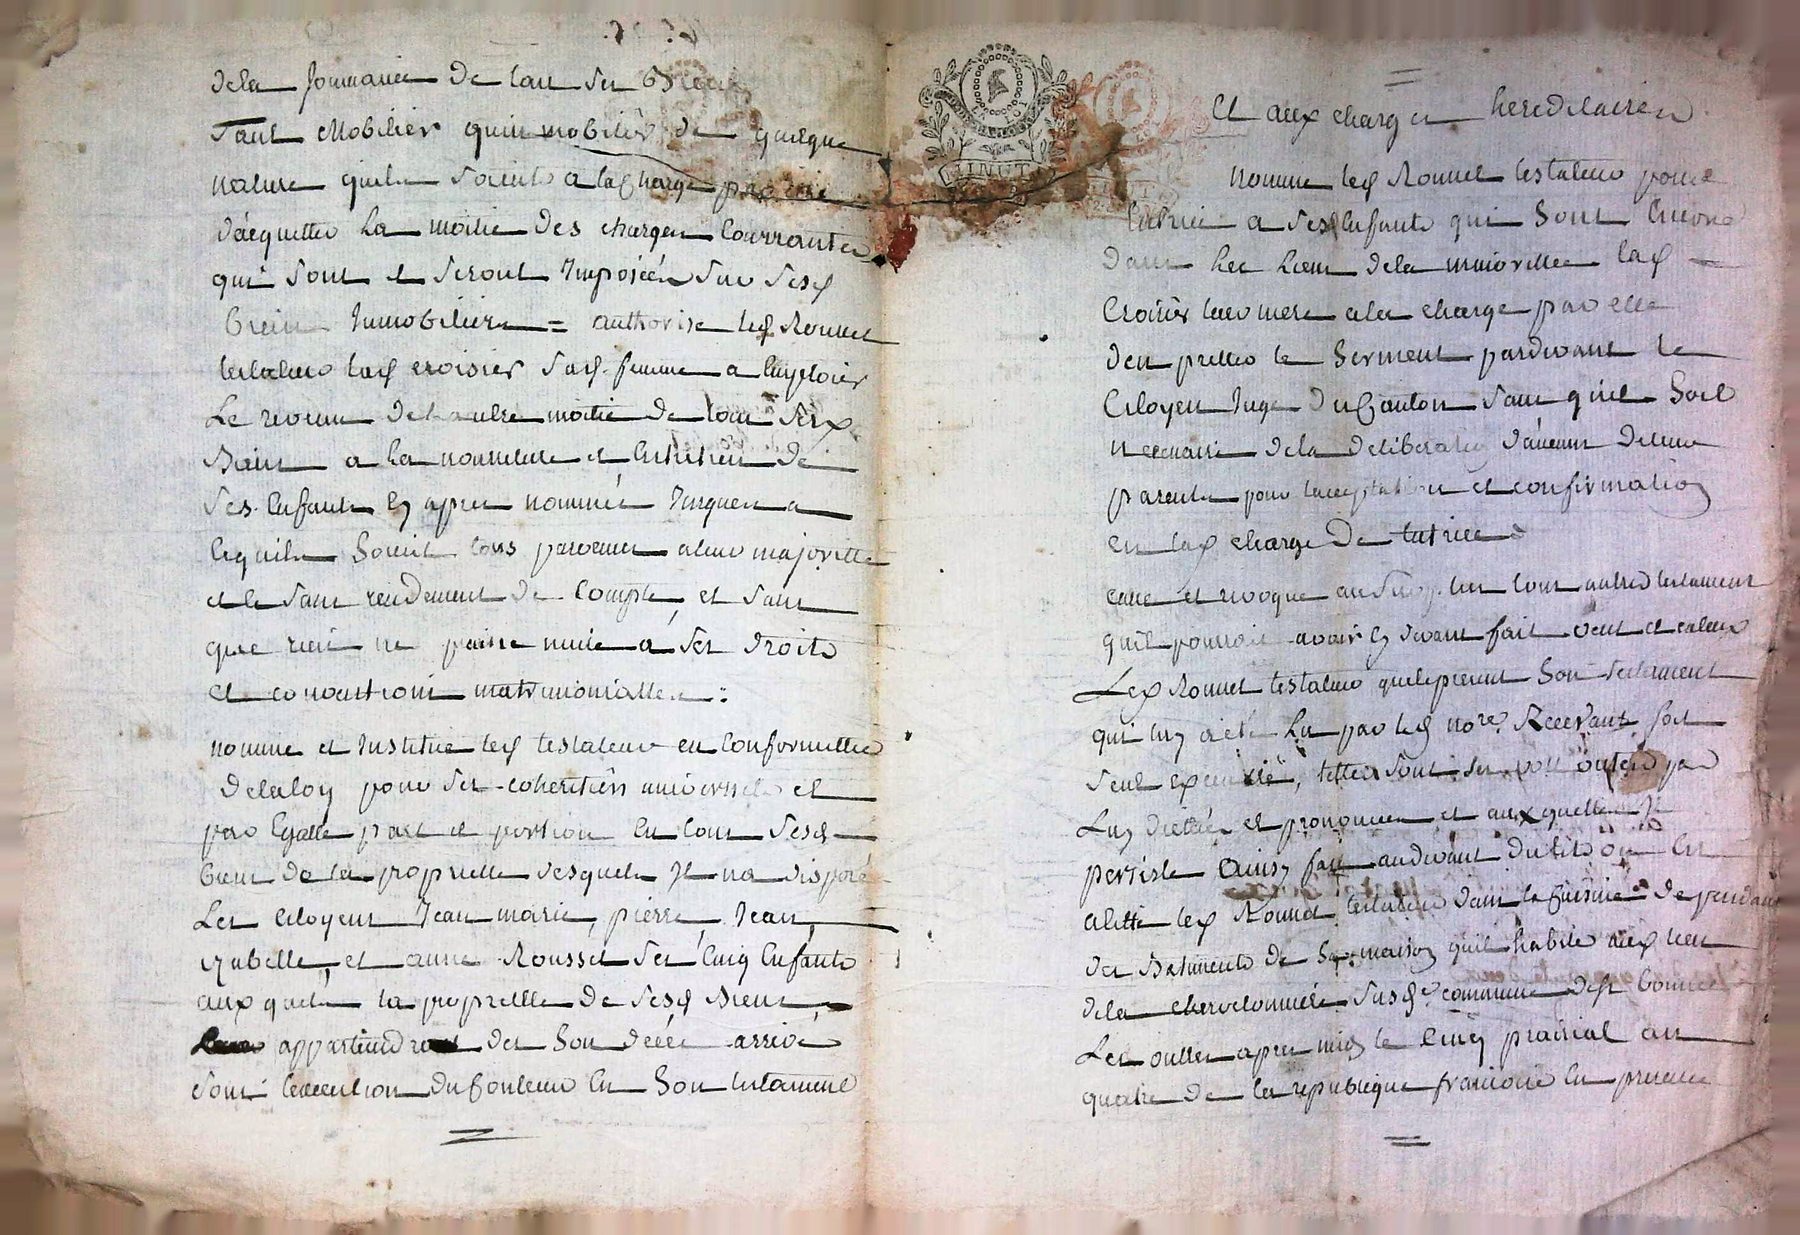 dela Jouissance de tous ses biens
Tant Mobiliers quim mobiliers de quelque
nature quils soints a la Charge par elle
d'acquitter La moitie des charges Courrantes
qui sont et seront Imposées sur sesd
biens Immobiliers = authorise led Rousset
testateur lad croisier sad. femme a Employer
Le revenu de lautre moitie de tous sesd
Biens a la nourriture et Entretien de
ses Enfants Cy apres nommés Jusques a
Cequils soint tous parvenus a leur majoritté
et le sans rendement de Compte, et sans
que rien ne puisse nuire a ses droits
et convantions matrimonialles :
nomme et Institue led testateur en Conformitté
delaloy pour ses coheritiers universels et
par Egalle part et portion En tous sesd
biens de la proprietté desquels Il na disposé
Les Citoyens Jean marie, pierre, Jean,
Izabelle, et anne Rousset ses Cinq Enfants
aux quels la proprietté de sesd Biens
appartiendront des son décés arrivé
sous Lexecution du Contenu En son testament
Et aux charges hereditaires
Nomme led Rousset testateur pour
tutrice a sesd Enfants qui sont Encore
dans les liens dela minoritté lad
Croisier leur mere ala charge par elle
den pretter le serment pardevant le
Citoyen Juge du Canton sans quil soit
necessaire dela deliberation daucuns de leurs
parents pour lacceptation et confirmation
en lad charge De tutrice
casse et revoque au surplus tous autres testaments
quil pourroit avoir Cy devant fait veut et entend
Led Rousset testateur que le present son testament
qui luy a eté Lu par led nore. Recevant soit
seul executté, telles sont ses vollontés par
Luy dictées et prononcées et auxquelles Il
persiste Ainsy fait audevant du lit où Est
alitté led Rousset testateur dans la Cuisine dependant
des Batiments de sa maison quil habite aux lieu
dela susde. commune dest bonnet
Les oulles apres midy le Cinq prairial an
quatre de la republique francoise En presence
MINUTE